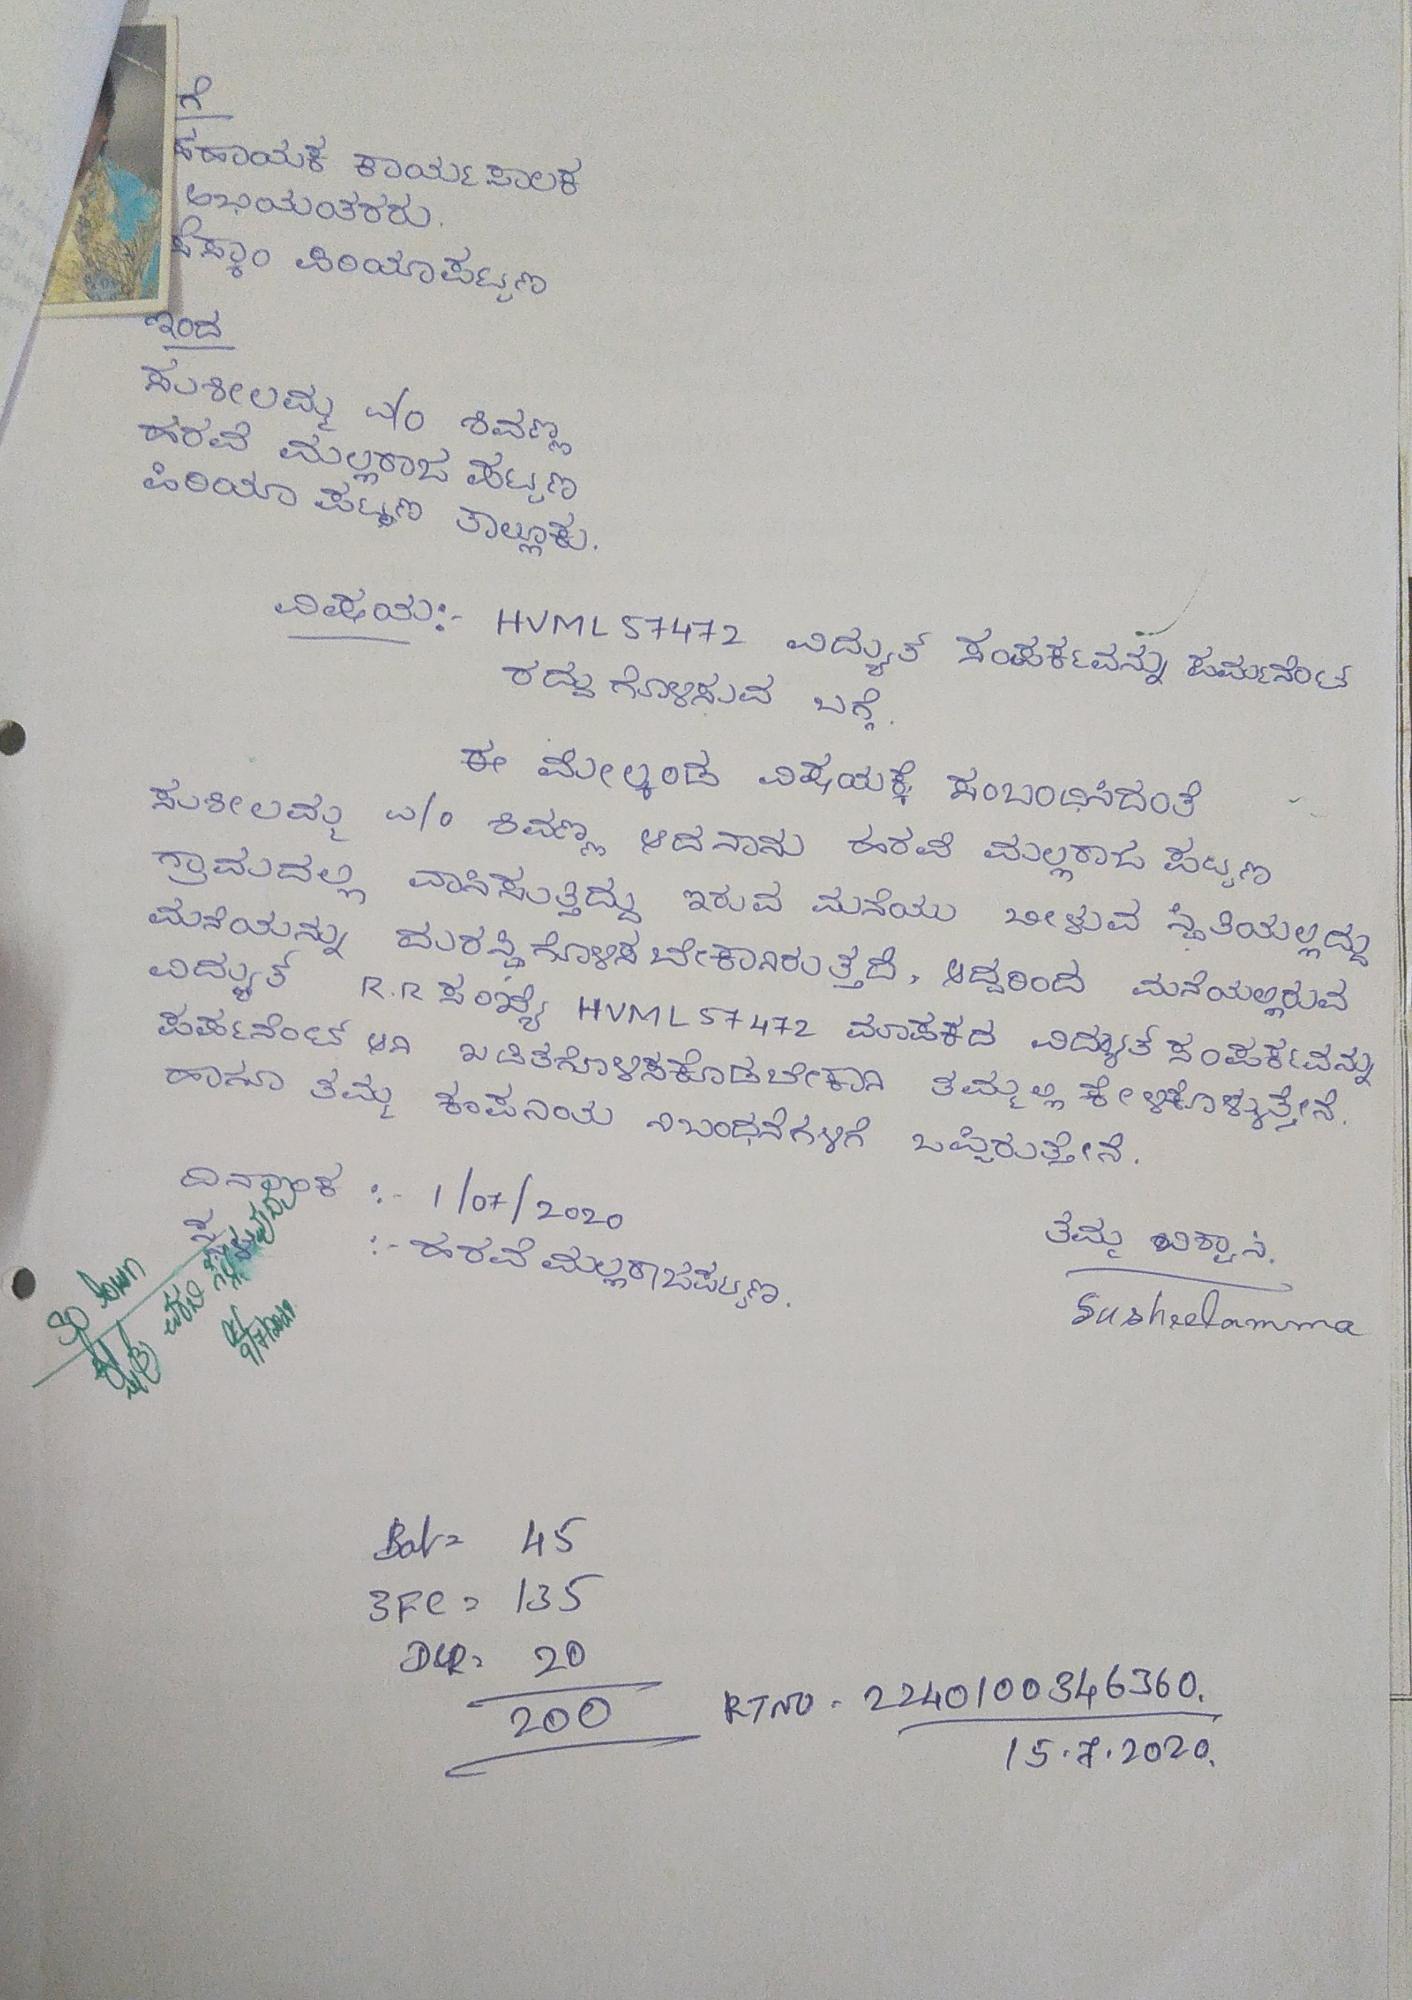 ಗೆ
ಸಹಾಯಕ ಕಾರ್ಯಪಾಲಕ
ಅಭಿಯಂತರರು.
ಸೆಸ್ಕಾಂ ಪಿರಿಯಾಪಟ್ಟಣ
ಇಂದ
ಸುಶೀಲಮ್ಮ w/o ಶಿವಣ್ಣ
ಹರವೆ ಮಲ್ಲರಾಜ ಪಟ್ಟಣ
ಪಿರಿಯಾ ಪಟ್ಟಣ ತಾಲ್ಲೂಕು.
ವಿಷಯ:- HVML57472 ವಿದ್ಯುತ್ ಸಂಪರ್ಕವನ್ನು ಪರ್ಮನೆಂಟ್
ರದ್ದುಗೊಳಿಸುವ ಬಗ್ಗೆ.
ಈ ಮೇಲ್ಕಂಡ ವಿಷಯಕ್ಕೆ ಸಂಬಂಧಿಸಿದಂತೆ
ಸುಶೀಲಮ್ಮ w/o ಶಿವಣ್ಣ ಆದ ನಾನು ಹರವೆ ಮಲ್ಲರಾಜ ಪಟ್ಟಣ
ಗ್ರಾಮದಲ್ಲಿ ವಾಸಿಸುತ್ತಿದ್ದು ಇರುವ ಮನೆಯು ಬೀಳುವ ಸ್ಥಿತಿಯಲ್ಲಿದ್ದು
ಮನೆಯನ್ನು ದುರಸ್ತಿಗೊಳಿಸ ಬೇಕಾಗಿರುತ್ತದೆ, ಆದ್ದರಿಂದ ಮನೆಯಲ್ಲಿರುವ
ವಿದ್ಯುತ್ R.R ಸಂಖ್ಯೆ HVML57472 ಮಾಪಕದ ವಿದ್ಯುತ್ ಸಂಪರ್ಕವನ್ನು
ಪರ್ಮನೆಂಟ್ ಆಗಿ ಖಡಿತಗೊಳಿಸಿಕೊಡಬೇಕಾಗಿ ತಮ್ಮಲ್ಲಿ ಕೇಳಿಕೊಳ್ಳುತ್ತೇನೆ.
ಹಾಗೂ ತಮ್ಮ ಕಂಪನಿಯ ನಿಬಂಧನೆಗಳಿಗೆ ಒಪ್ಪಿರುತ್ತೇನೆ.
ದಿನಾಂಕ :- 1/07/2020
:- ಹರವೆ ಮಲ್ಲರಾಜಪಟ್ಟಣ.
ತಮ್ಮ ವಿಶ್ವಾಸಿ.
Susheelamma
Bal = 45
3FC = 135
D&R = 20
200
RTNO - 2240100346360.
15.7.2020.